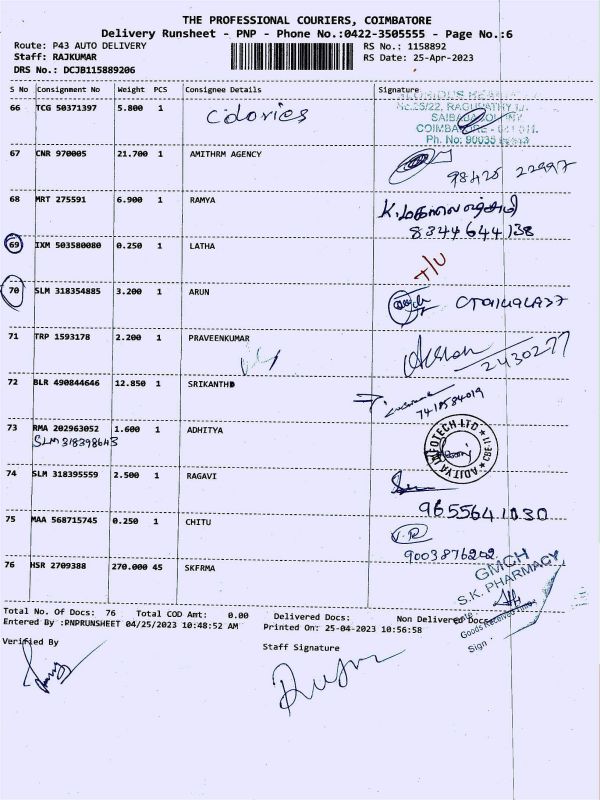 THE PROFESSIONAL COURIERS, COIMBATORE
Delivery Runsheet - PNP - Phone No.:0422-3505555 - Page No.:6
Route: P43 AUTO DELIVERY RS No.: 1158892
Staff: RAJKUMAR RS Date: 25-Apr-2023
DRS No.: DCJB115889206
S No Consignment No Weight PCS Consignee Details Signature
66 TCG 50371397 5.800 1 calories
SAIBABA COLONY
COIMBATORE - 641 011.
Ph. No: 90035
67 CNR 970005 21.700 1 AMITHRM AGENCY
98428 22997
68 MRT 275591 6.900 1 RAMYA
8344644138
69 IXM 503580080 0.250 1 LATHA
70 SLM 318354885 3.200 1 ARUN
71 TRP 1593178 2.200 1 PRAVEENKUMAR
2430277
72 BLR 490844646 12.850 1 SRIKANTHD
7418584019
73 RMA 202963052 1.600 1 ADHITYA
SLM 318398643
ADITYA INFOTECH LTD CBE-11
74 SLM 318395559 2.500 1 RAGAVI
9655641030
75 MAA 568715745 0.250 1 CHITU
V.R
9003876202
76 HSR 2709388 270.000 45 SKFRMA
GMCH
S.K. PHARMACY
Date
Goods Received
Sign
Total No. Of Docs: 76 Total COD Amt: 0.00 Delivered Docs: Non Delivered Docs:
Entered By :PNPRUNSHEET 04/25/2023 10:48:52 AM Printed On: 25-04-2023 10:56:58
Verified By Staff Signature